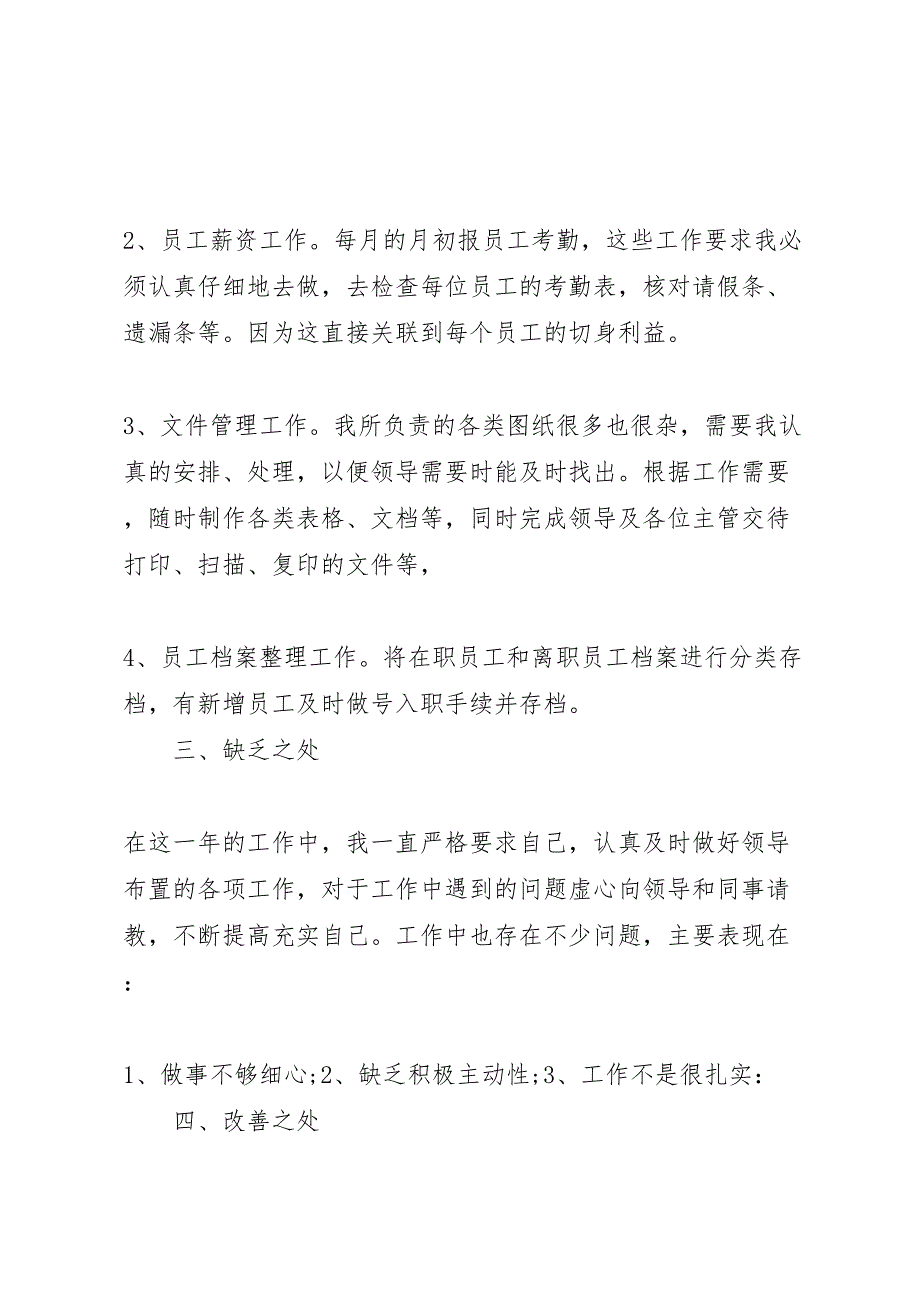 2、员工薪资工作。每月的月初报员工考勤，这些工作要求我必
须认真仔细地去做，去检查每位员工的考勤表，核对请假条、
遗漏条等。因为这直接关联到每个员工的切身利益。
3、文件管理工作。我所负责的各类图纸很多也很杂，需要我认
真的安排、处理，以便领导需要时能及时找出。根据工作需要
，随时制作各类表格、文档等，同时完成领导及各位主管交待
打印、扫描、复印的文件等，
4、员工档案整理工作。将在职员工和离职员工档案进行分类存
档，有新增员工及时做号入职手续并存档。
三、缺乏之处
在这一年的工作中，我一直严格要求自己，认真及时做好领导
布置的各项工作，对于工作中遇到的问题虚心向领导和同事请
教，不断提高充实自己。工作中也存在不少问题，主要表现在
：
1、做事不够细心;2、缺乏积极主动性;3、工作不是很扎实：
四、改善之处